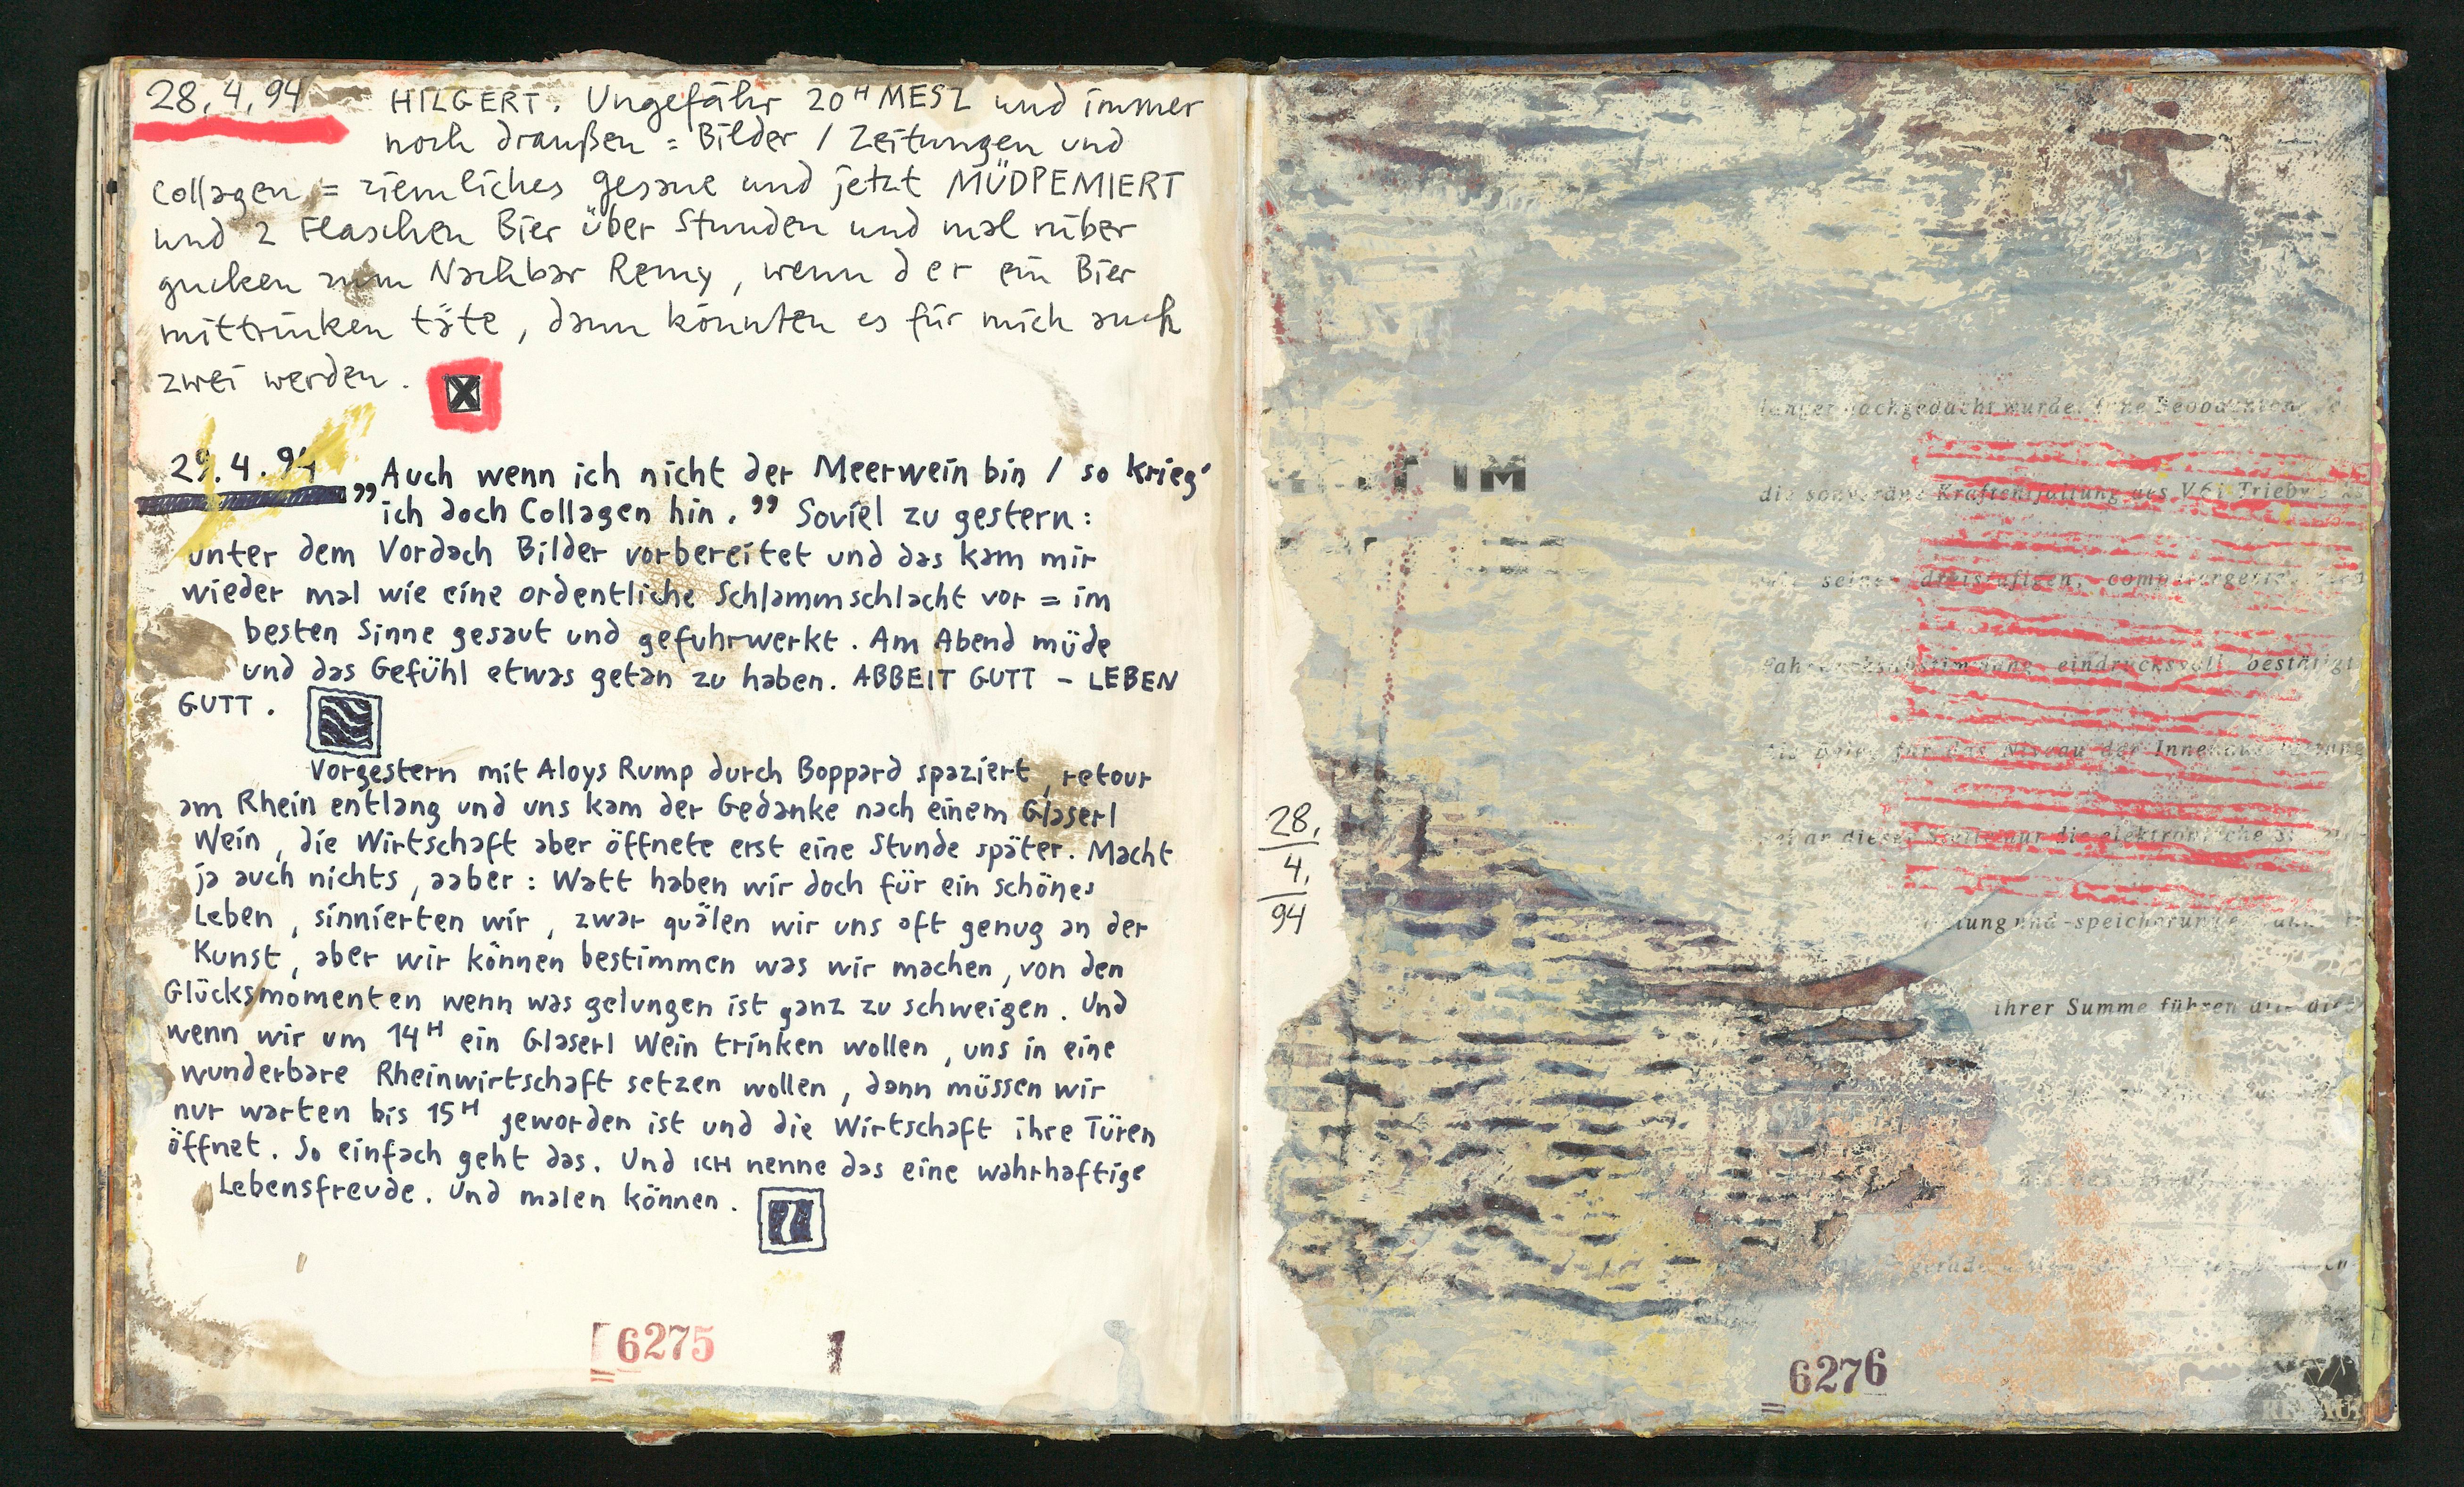 28.4.94 HILGERT. Ungefähr 20H MESZ und immer
noch draußen = Bilder / Zeitungen und
Collagen = ziemliches gesaue und jetzt MÜDPEMIERT
und 2 Flaschen Bier über Stunden und mal rüber
gucken zum Nachbar Remy, wenn der ein Bier
mittrinken täte, dann könnten es für mich auch
zwei werden. X
29.4.94 „Auch wenn ich nicht der Meerwein bin / so krieg'
ich doch Collagen hin.” Soviel zu gestern:
unter dem Vordach Bilder vorbereitet und das kam mir
wieder mal wie eine ordentliche Schlammschlacht vor = im
besten Sinne gesaut und gefuhrwerkt. Am Abend müde
und das Gefühl etwas getan zu haben. ABBEIT GUTT – LEBEN
GUTT.
Vorgestern mit Aloys Rump durch Boppard spaziert, retour
am Rhein entlang und uns kam der Gedanke nach einem Glaserl
Wein, die Wirtschaft aber öffnete erst eine Stunde später. Macht
ja auch nichts, aaber: Watt haben wir doch für ein schönes
Leben, sinnierten wir, zwar quälen wir uns oft genug an der
Kunst, aber wir können bestimmen was wir machen, von den
Glücksmomenten wenn was gelungen ist ganz zu schweigen. Und
wenn wir um 14H ein Glaserl Wein trinken wollen, uns in eine
wunderbare Rheinwirtschaft setzen wollen, dann müssen wir
nur warten bis 15H geworden ist und die Wirtschaft ihre Türen
öffnet. So einfach geht das. Und ICH nenne das eine wahrhaftige
Lebensfreude. Und malen können.
6275 1
28.
4.
94
IM
länger nachgedacht wurde.
die souveräne Kraftentfaltung des V6i-Trieb
seine dreistufigen,
eindrucksvoll bestätigt
für das Niveau der
an dieser Stelle nur die elektronische
und -speicherung
ihrer Summe führen
gerade
6276